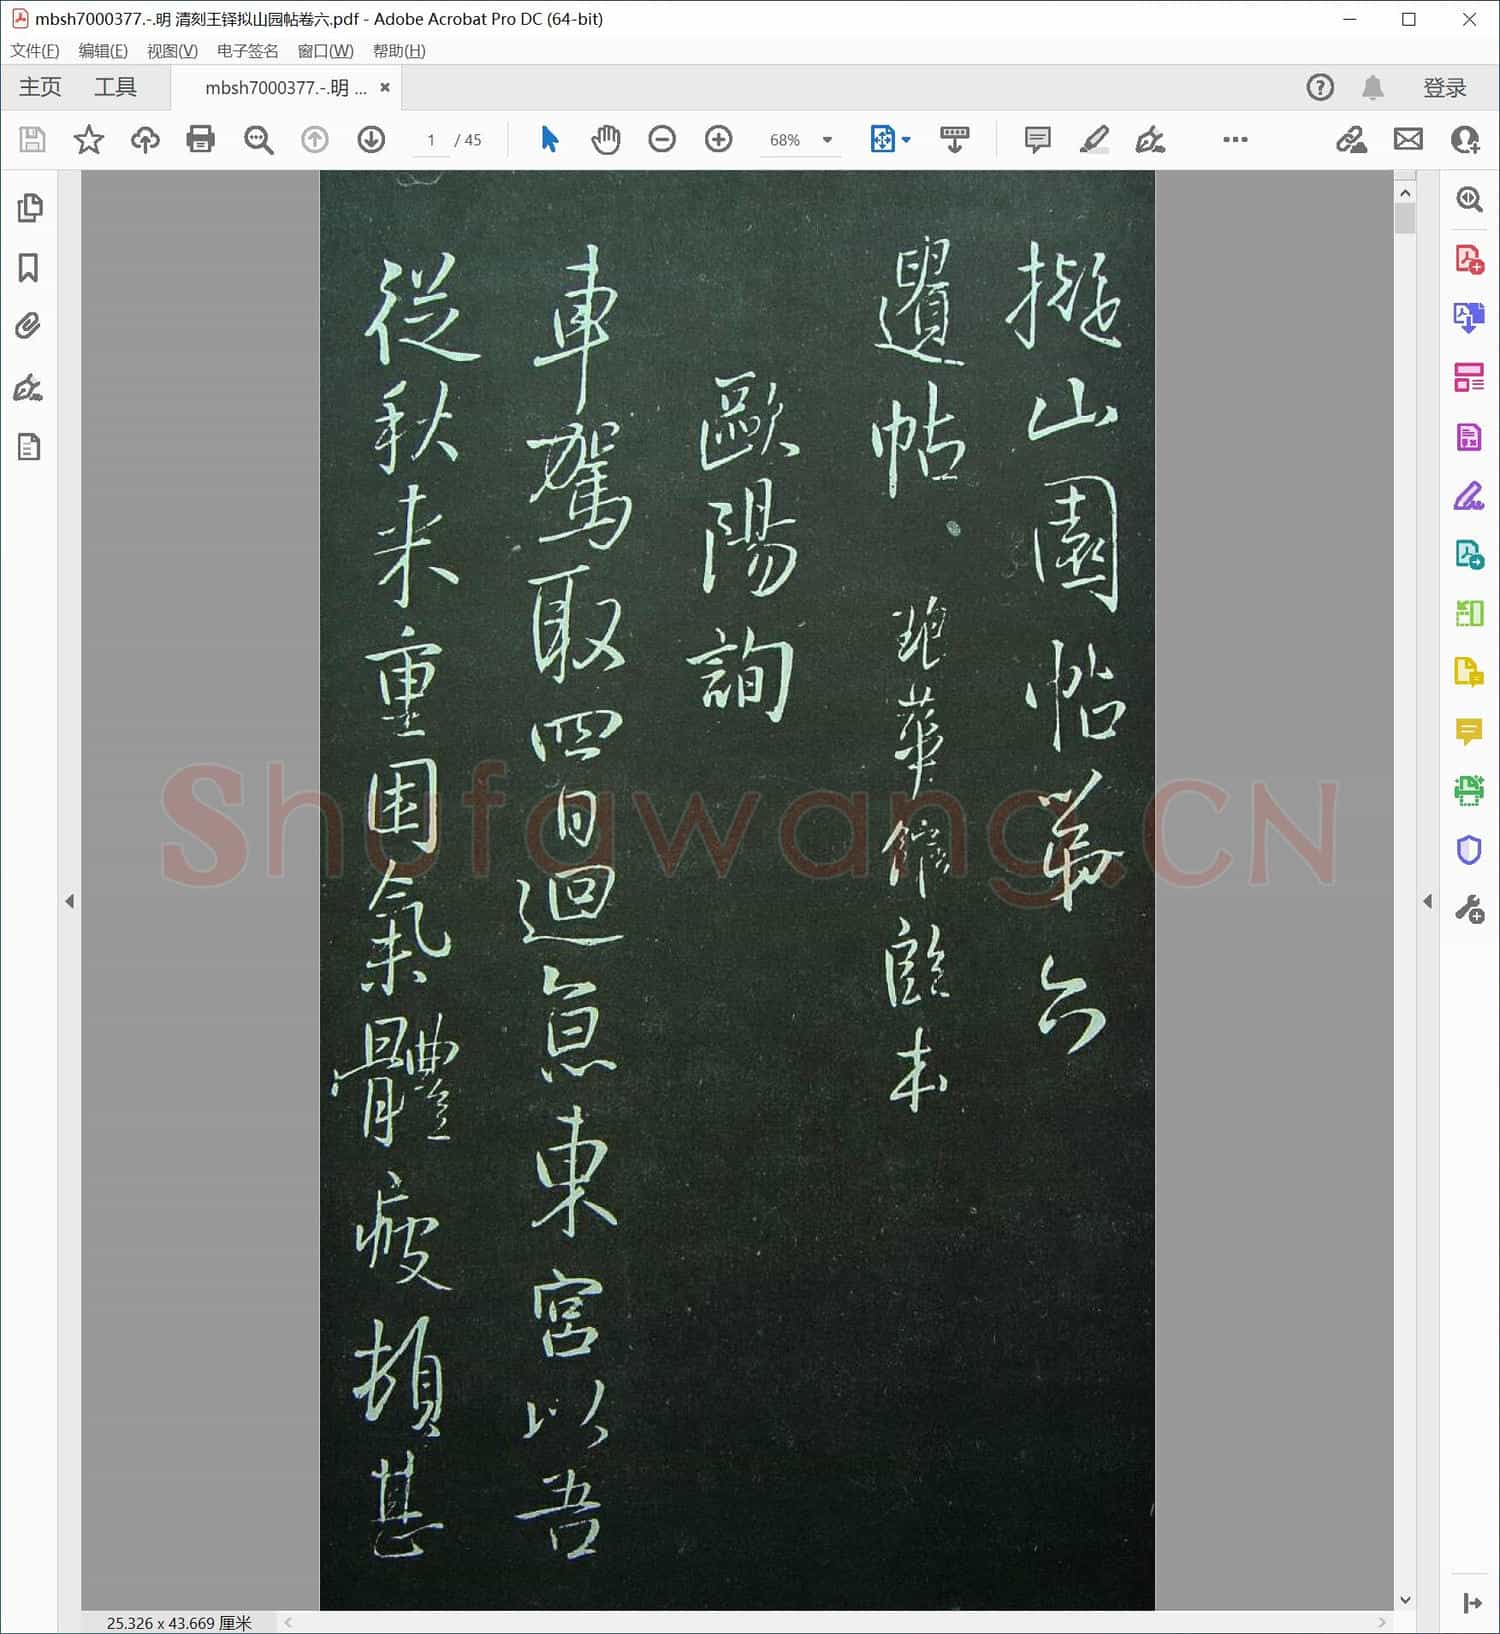 mbsh7000377.-.明 清刻王铎拟山园帖卷六.pdf - Adobe Acrobat Pro DC (64-bit)
文件(F) 编辑(E) 视图(V) 电子签名 窗口(W) 帮助(H)
主页 工具 mbsh7000377.-.明 ... 登录
1 / 45 68%
擬山園帖第六
遺帖 琅華館臨本
歐陽詢
車駕取四日迴息東宮以吾
從秋来重困氣體疲頓甚
Shufawang.CN
25.326 x 43.669 厘米